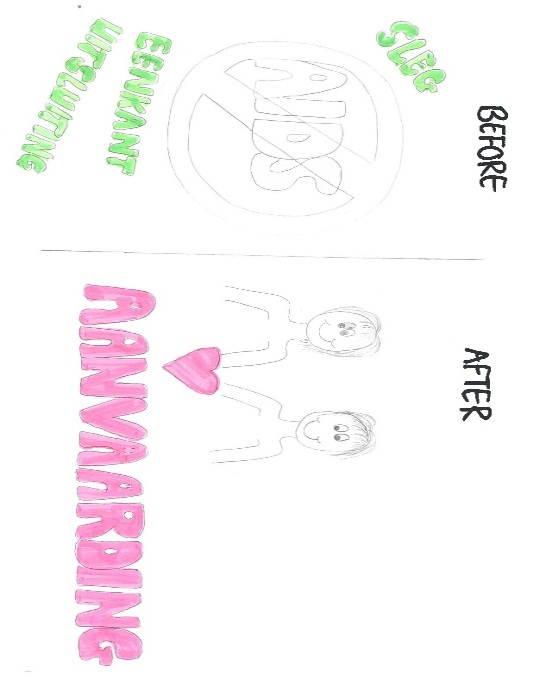 BEFORE
SLEG
AIDS
EENKANT
UITSLUITING
AFTER
AANVAARDING